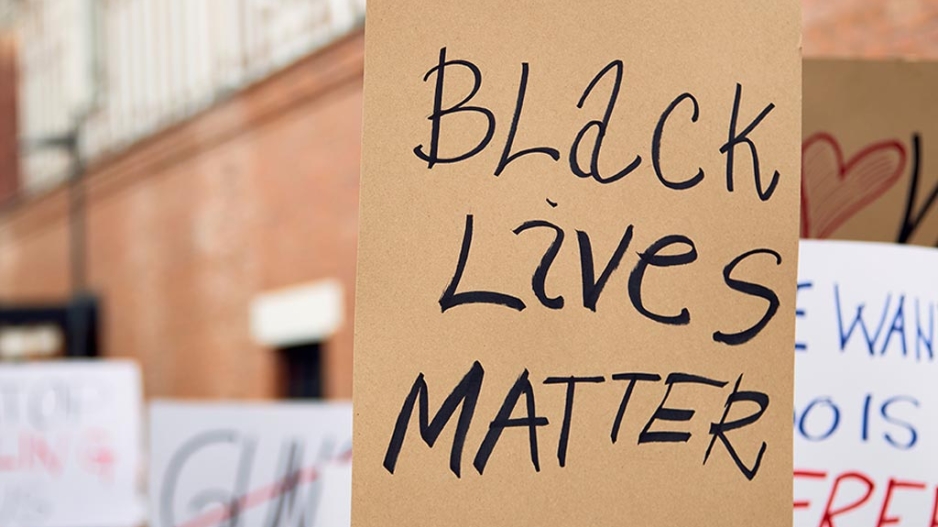 BLacK
Lives
MATTER
E WAN
DO IS
FREE
TOP
GUN